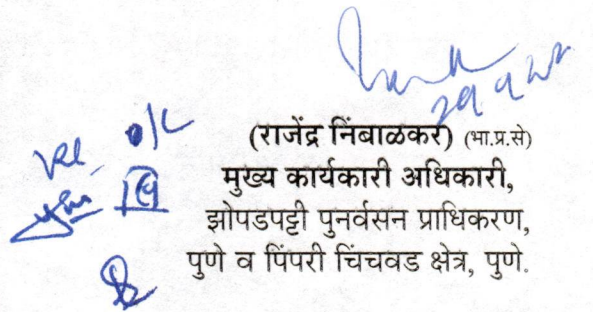 (राजेंद्र निंबाळकर) (भा.प्र.से)
मुख्य कार्यकारी अधिकारी,
झोपडपट्टी पुनर्वसन प्राधिकरण,
पुणे व पिंपरी चिंचवड क्षेत्र, पुणे.